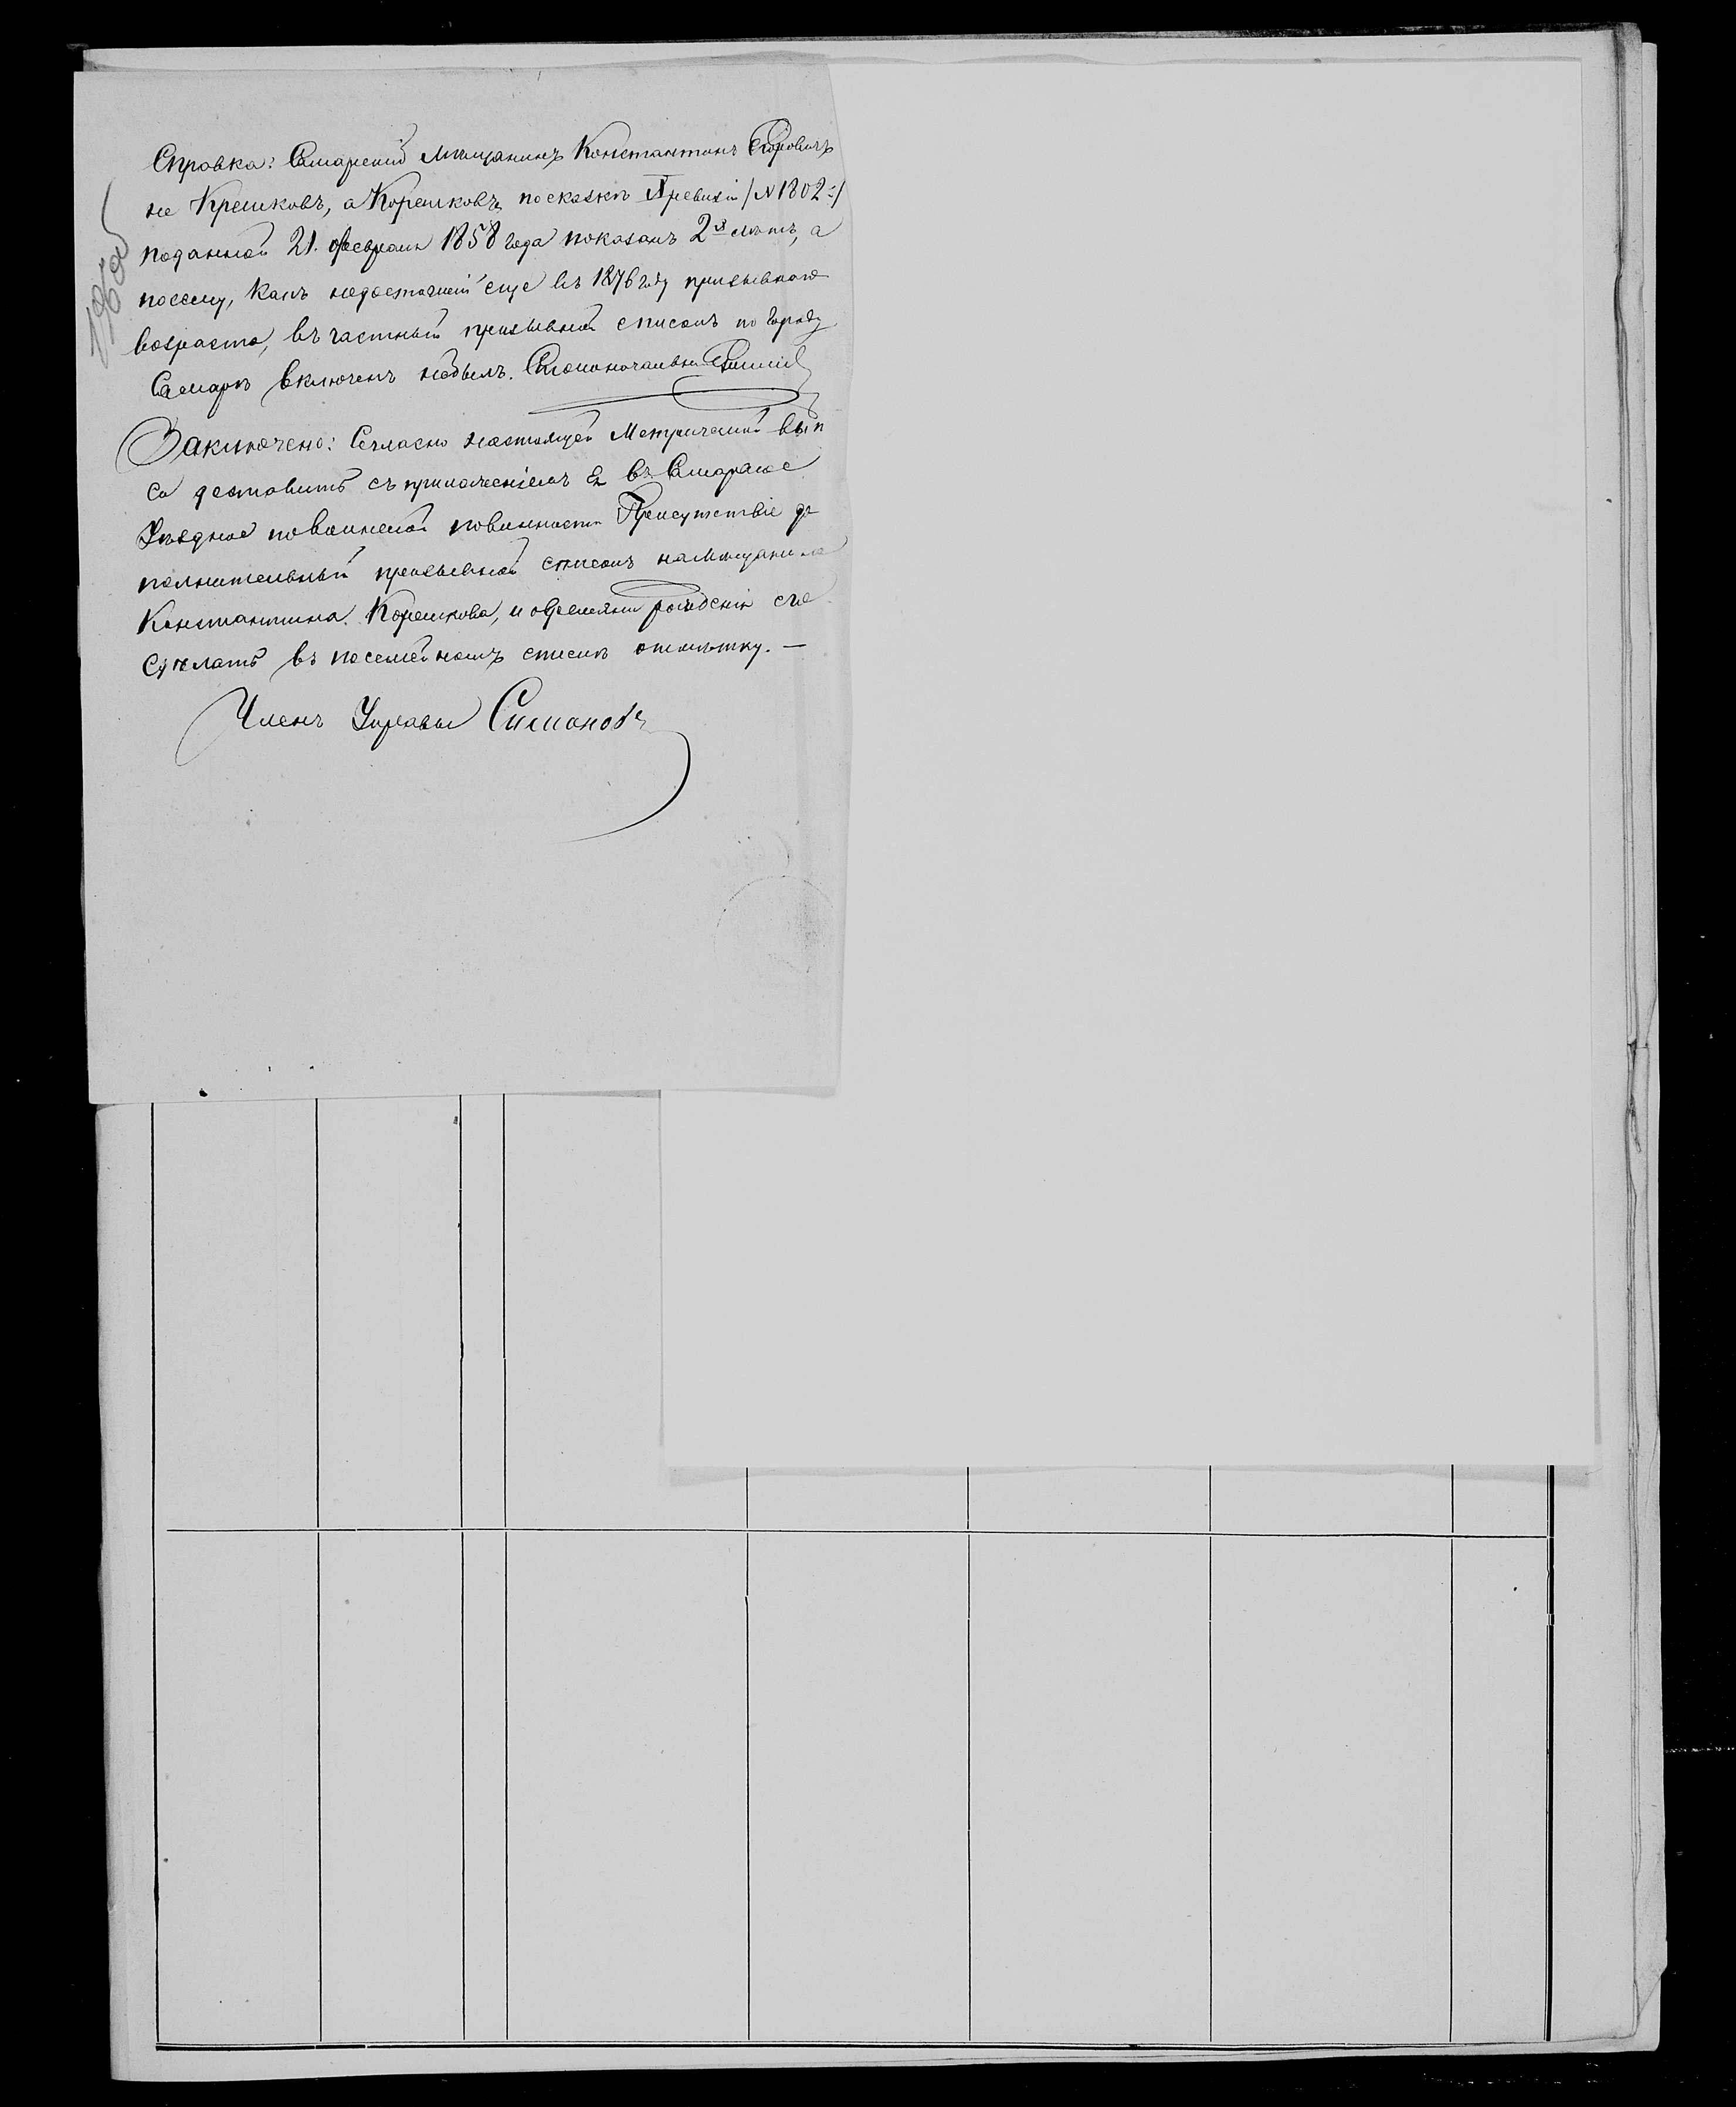 Справка: Самарский мещанинъ Константинъ Егоровичъ
не Крешковъ, а Корешковъ, по сказкѣ X ревизiи /№ 1802:/
поданной 21. февраля 1858 года показанъ 2хъ лѣтъ, а
посему, какъ недостигшiй еще въ 1876 году призывнаго
возраста, въ частный призывной списокъ по городу
Самарѣ включенъ небылъ. Столоначальникъ
Заключено: Согласно настоящей Метрической вып
си доставить съ приложенiемъ ея въ Самарское
Уѣздное по воинской повинности Присутствiе до
полнительный призывной списокъ на мѣщанина
Константина Корешкова, и о времяни рожденiя его
сдѣлать въ посемейномъ спискѣ отмѣтку. —
Членъ Управы Симановъ